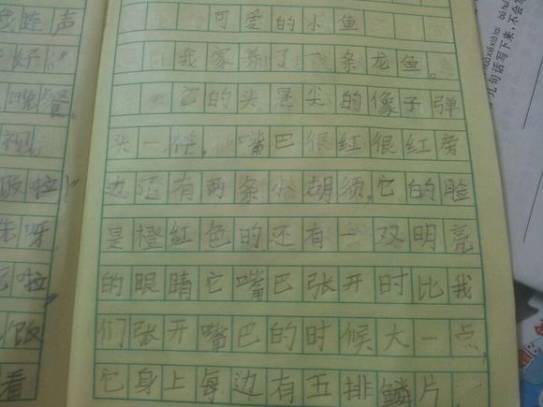 可爱的小鱼
我家养了一条龙鱼。
它的头是尖的像子弹
头一样,嘴巴很红很红旁
边还有两条小胡须,它的脸
是橙红色的还有一双明亮
的眼睛它嘴巴张开时比我
们张开嘴巴的时候大一点
它身上每边有五排鳞片
声
呀
啦
看